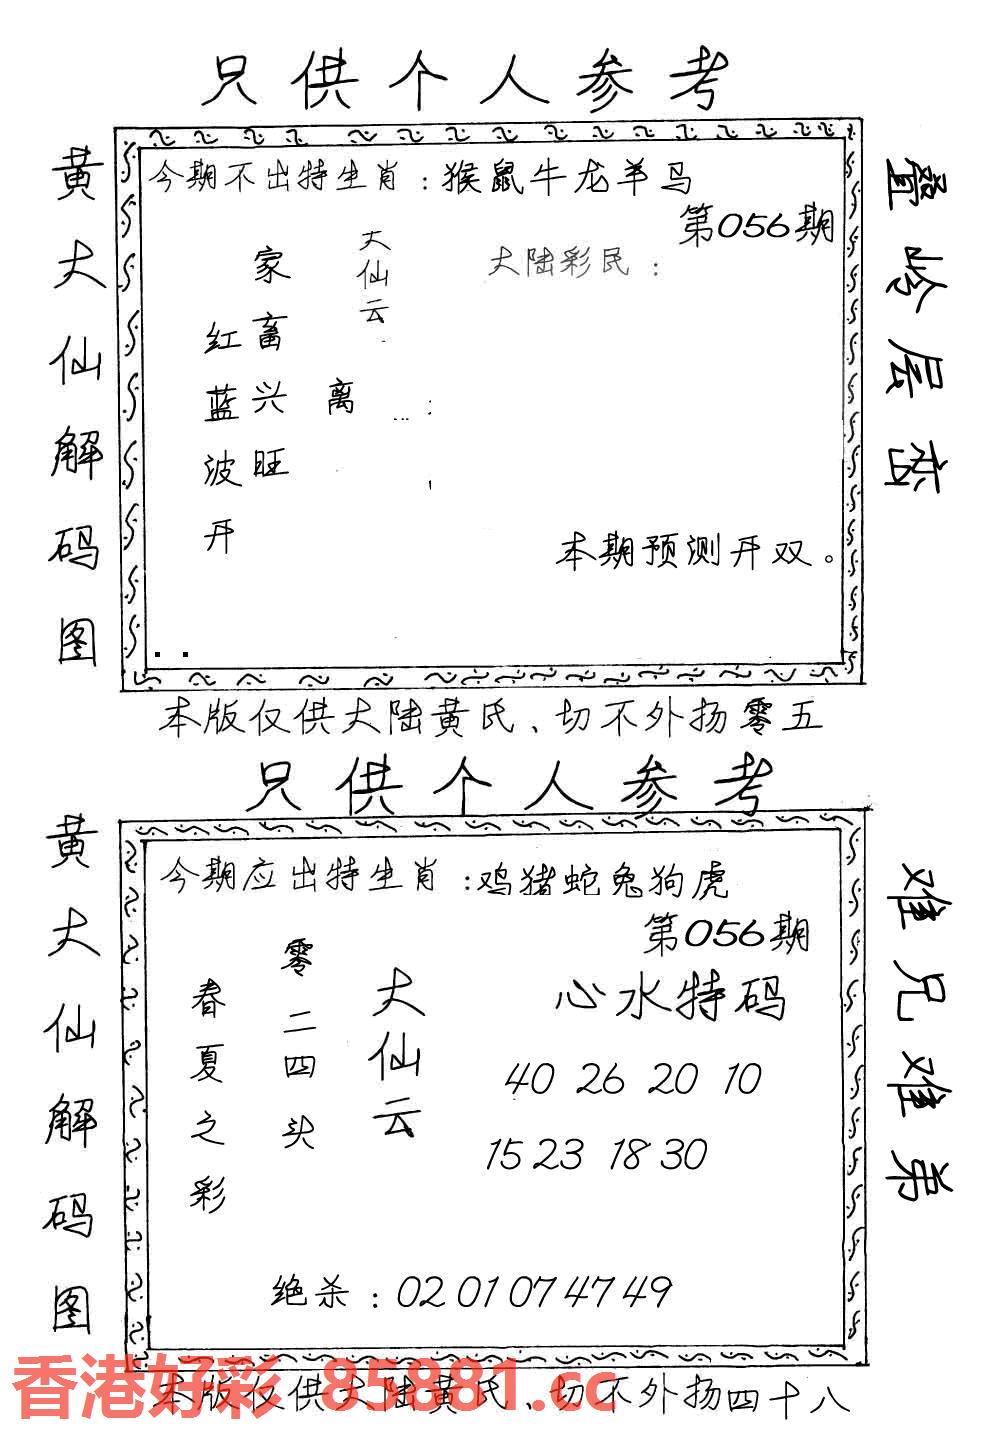 只供个人参考
黄大仙解码图
今期不出特生肖：猴鼠牛龙羊马
第056期
大陆彩民：
大仙云
离
家畜兴旺
红蓝波开
本期预测开双。
叠岭层峦
本版仅供大陆黄氏、切不外扬零五
只供个人参考
黄大仙解码图
今期应出特生肖：鸡猪蛇兔狗虎
第056期
心水特码
大仙云
零二四头
春夏之彩
40 26 20 10
15 23 18 30
绝杀：02 01 07 47 49
难兄难弟
香港好彩 85881.cc
本版仅供大陆黄氏、切不外扬四十八